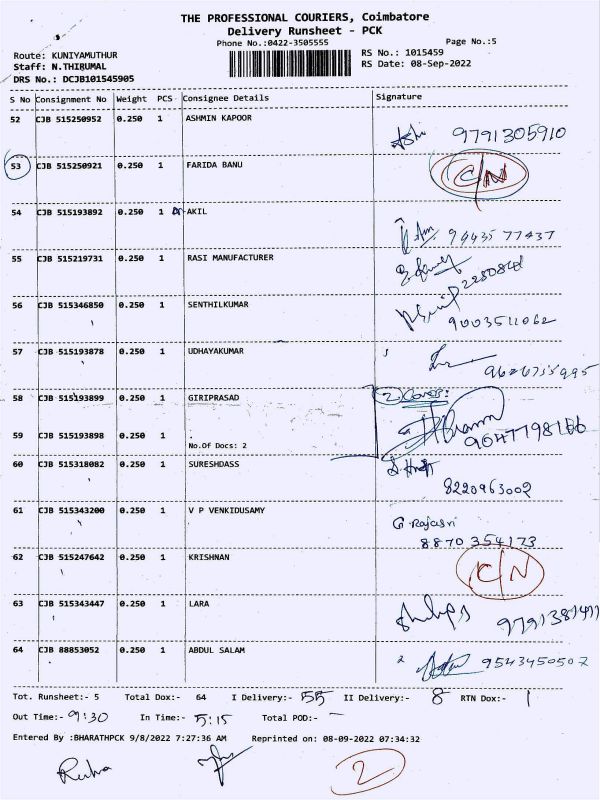 THE PROFESSIONAL COURIERS, Coimbatore
Delivery Runsheet - PCK
Phone No.:0422-3505555 Page No.:5
Route: KUNIYAMUTHUR RS No.: 1015459
Staff: N.THIRUMAL RS Date: 08-Sep-2022
DRS No.: DCJB101545905
S No Consignment No Weight PCS Consignee Details Signature
52 CJB 515250952 0.250 1 ASHMIN KAPOOR 9791305910
53 CJB 515250921 0.250 1 FARIDA BANU C/N
54 CJB 515193892 0.250 1 AKIL 94435 77437
55 CJB 515219731 0.250 1 RASI MANUFACTURER
56 CJB 515346850 0.250 1 SENTHILKUMAR 9003511062
57 CJB 515193878 0.250 1 UDHAYAKUMAR
58 CJB 515193899 0.250 1 GIRIPRASAD 2 Cover:
59 CJB 515193898 0.250 1 No.Of Docs: 2
60 CJB 515318082 0.250 1 SURESHDASS 8220963002
61 CJB 515343200 0.250 1 V P VENKIDUSAMY G. Rajasri
8870 354173
62 CJB 515247642 0.250 1 KRISHNAN C/N
63 CJB 515343447 0.250 1 LARA
64 CJB 88853052 0.250 1 ABDUL SALAM 9543450507
Tot. Runsheet:- 5 Total Dox:- 64 I Delivery:- 55 II Delivery:- 8 RTN Dox:- 1
Out Time:- 9:30 In Time:- 5:15 Total POD:- -
Entered By :BHARATHPCK 9/8/2022 7:27:36 AM Reprinted on: 08-09-2022 07:34:32
2